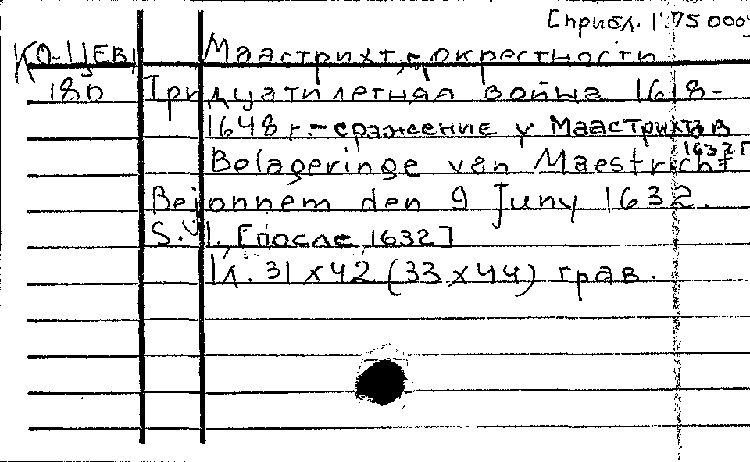 [прибл. 1:75 000]
КО-ЦЕВ/ Маастрихт, окрестности
180 Тридцатилетняя война 1618-
1648 г. - сражение у Маастрихта в
1632 г.
Belageringe van Maestricht
Bejonnem den 9 Juny 1632.
S.l. [после 1632]
1 л. 31 х 42 (33 х 44) грав.